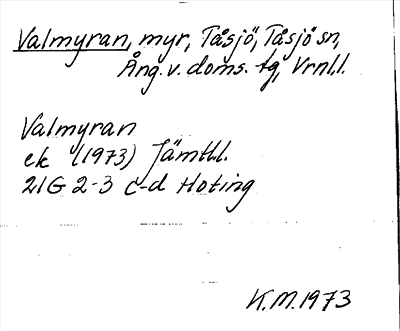 Valmyran, myr, Tåsjö, Tåsjö sn,
Ång. v. doms. tg, Vrnl.l.
Valmyran
ek (1973) Jämtl.l.
21G 2-3 c-d Hoting
K.M. 1973